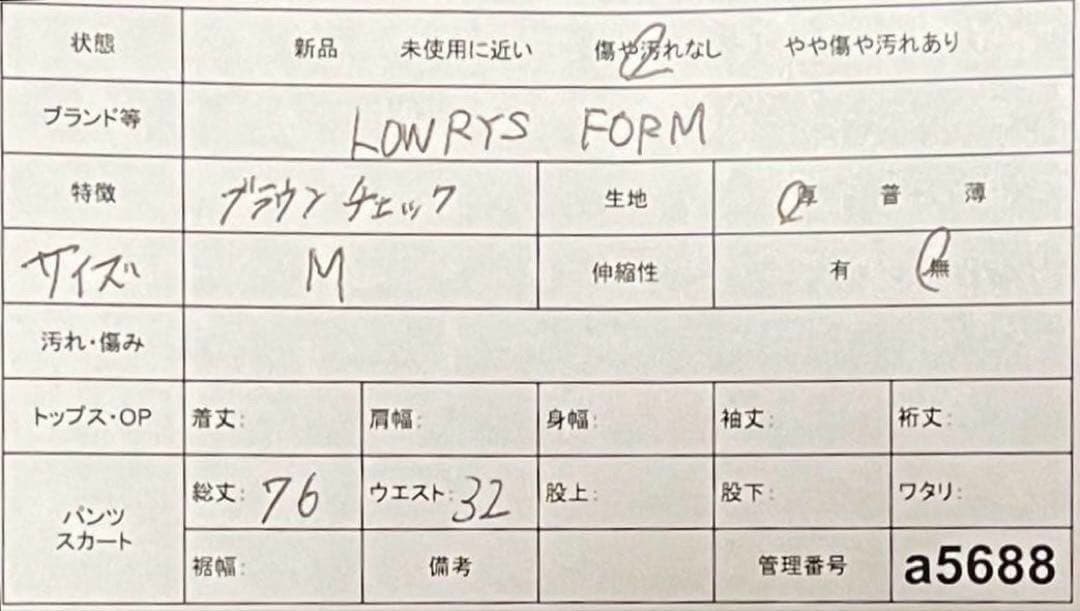 状態 新品 未使用に近い 傷や汚れなし やや傷や汚れあり
ブランド等 LOWRYS FORM
特徴 ブラウンチェック 生地 厚 普 薄
サイズ M 伸縮性 有 無
汚れ・傷み
トップス・OP 着丈: 肩幅: 身幅: 袖丈: 裄丈:
パンツ スカート 総丈: 76 ウエスト: 32 股上: 股下: ワタリ:
裾幅: 備考 管理番号 a5688